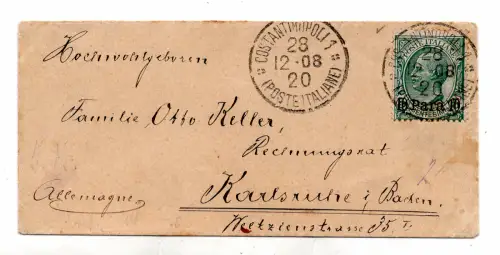 COSTANTINOPOLI 1
28
12·08
20
(POSTE ITALIANE)
POSTE ITALIANE
28
12·08
20
10 Para 10
Hochwohlgeboren
Familie Otto Keller,
Rechnungsrat
Karlsruhe i/Baden.
Allemagne
Weltzienstrasse 35. I.